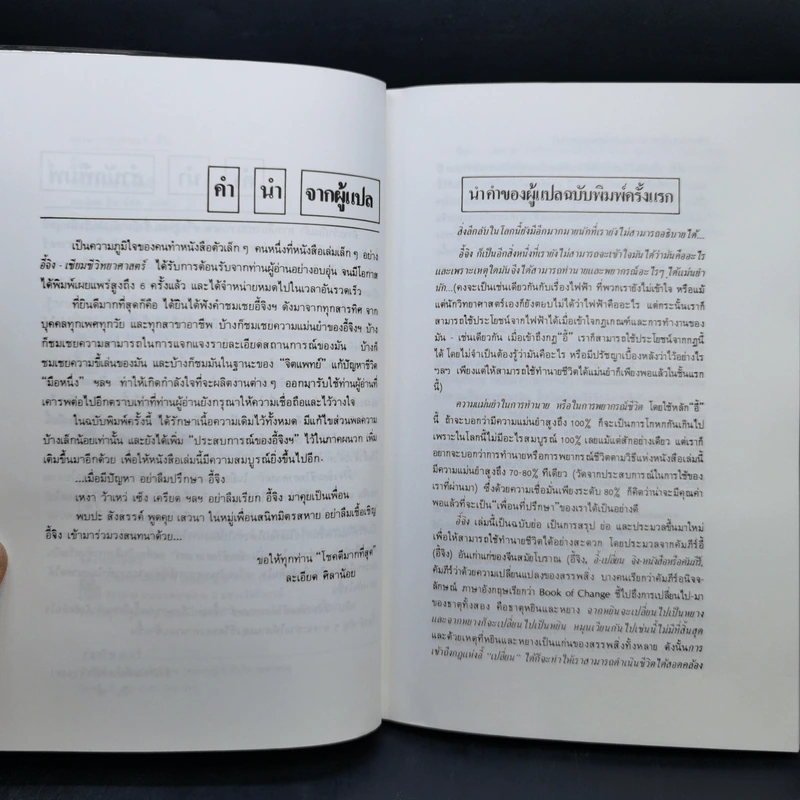 คำ นำ จากผู้แปล
เป็นความภูมิใจของคนทำหนังสือตัวเล็กๆ คนหนึ่งที่หนังสือเล่มเล็กๆ อย่าง
อี้จิง - เซียมซีวิทยาศาสตร์ ได้รับการต้อนรับจากท่านผู้อ่านอย่างอบอุ่น จนมีโอกาส
ได้พิมพ์เผยแพร่สูงถึง 6 ครั้งแล้ว และได้จำหน่ายหมดไปในเวลาอันรวดเร็ว
ที่ยินดีมากที่สุดก็คือ ได้ยินได้ฟังคำชมเชยอี้จิงฯ ดังมาจากทุกสารทิศ จาก
บุคคลทุกเพศทุกวัย และทุกสาขาอาชีพ บ้างก็ชมเชยความแม่นยำของอี้จิงฯ บ้าง
ก็ชมเชยความสามารถในการแจกแจงรายละเอียดสถานการณ์ของมัน บ้างก็ชม
ชมเชยความขี้เล่นของมัน และบ้างก็ชมมันในฐานะของ “จิตแพทย์” แก้ปัญหาชีวิต
“มือหนึ่ง” ฯลฯ ทำให้เกิดกำลังใจที่จะผลิตงานต่างๆ ออกมารับใช้ท่านผู้อ่านที่
เคารพต่อไปอีกตราบเท่าที่ท่านผู้อ่านยังกรุณาให้ความเชื่อถือและไว้วางใจ
ในฉบับพิมพ์ครั้งนี้ ได้รักษาเนื้อความเดิมไว้ทั้งหมด มีแก้ไขส่วนพลความ
บ้างเล็กน้อยเท่านั้น และยังได้เพิ่ม “ประสบการณ์ของอี้จิงฯ” ไว้ในภาคผนวก เพิ่ม
เติมขึ้นมาอีกด้วย เพื่อให้หนังสือเล่มนี้มีความสมบูรณ์ยิ่งขึ้นไปอีก-
...เมื่อมีปัญหา อย่าลืมปรึกษา อี้จิง
เหงา ว้าเหว่ เซ็ง เครียด ฯลฯ อย่าลืมเรียก อี้จิง มาคุยเป็นเพื่อน
พบปะ สังสรรค์ พูดคุย เสวนา ในหมู่เพื่อนสนิทมิตรสหาย อย่าลืมเชื้อเชิญ
อี้จิง เข้ามาร่วมวงสนทนาด้วย...
ขอให้ทุกท่าน “โชคดีมากที่สุด”
ละเอียด ศิลาน้อย
นำคำของผู้แปลฉบับพิมพ์ครั้งแรก
สิ่งลึกลับในโลกนี้ยังมีอีกมากมายนักที่เรายังไม่สามารถอธิบายได้...
อี้จิง ก็เป็นอีกสิ่งหนึ่งที่เรายังไม่สามารถจะเข้าใจมันได้ว่ามันคืออะไร
และเพราะเหตุใดมันจึงได้สามารถทำนายและพยากรณ์อะไรๆ ได้แม่นยำ
นัก...(คงจะเป็นเช่นเดียวกันกับเรื่องไฟฟ้า ที่พวกเรายังไม่เข้าใจ หรือแม้
แต่นักวิทยาศาสตร์เองก็ยังตอบไม่ได้ว่าไฟฟ้าคืออะไร แต่กระนั้นเราก็
สามารถใช้ประโยชน์จากไฟฟ้าได้เมื่อเข้าใจกฎเกณฑ์และการทำงานของ
มัน - เช่นเดียวกัน เมื่อเข้าถึงกฎ “อี้” เราก็สามารถใช้ประโยชน์จากกฎนี้
ได้ โดยไม่จำเป็นต้องรู้ว่ามันคืออะไร หรือมีปรัชญาเบื้องหลังว่าไว้อย่างไร
ฯลฯ เพียงแต่ให้สามารถใช้ทำนายชีวิตได้แม่นยำก็เพียงพอแล้วในชั้นแรก
นี้)
ความแม่นยำในการทำนาย หรือในการพยากรณ์ชีวิต โดยใช้หลัก “อี้”
นี้ ถ้าจะบอกว่ามีความแม่นยำสูงถึง 100% ก็จะเป็นการโกหกกันเกินไป
เพราะในโลกนี้ไม่มีอะไรสมบูรณ์ 100% เลยแม้แต่สักอย่างเดียว แต่เราก็
อยากจะบอกว่าการทำนายหรือการพยากรณ์ชีวิตตามวิธีแห่งหนังสือเล่มนี้
มีความแม่นยำสูงถึง 70-80% ทีเดียว (วัดจากประสบการณ์ในการใช้ของ
เราที่ผ่านมา) ซึ่งด้วยความเชื่อมั่นเพียงระดับ 80% ก็คิดว่าน่าจะมีคุณค่า
พอแล้วที่จะเป็น “เพื่อนที่ปรึกษา” ของเราได้เป็นอย่างดี
อี้จิง เล่มนี้เป็นฉบับย่อ เป็นการสรุป ย่อ และประมวลขึ้นมาใหม่
เพื่อให้สามารถใช้ทำนายชีวิตได้อย่างสะดวก โดยประมวลจากคัมภีร์อี้
(อี้จิง) อันเก่าแก่ของจีนสมัยโบราณ (อี้จิง, อี้-เปลี่ยน จิง-หนังสือหรือคัมภีร์,
คัมภีร์ว่าด้วยความเปลี่ยนแปลงของสรรพสิ่ง บางคนเรียกว่าคัมภีร์อนิจจ-
ลักษณ์ ภาษาอังกฤษเรียกว่า Book of Change ชี้ไปถึงการเปลี่ยนไป-มา
ของธาตุทั้งสอง คือธาตุหยินและหยาง จากหยินจะเปลี่ยนไปเป็นหยาง
และจากหยางก็จะเปลี่ยนไปเป็นหยิน หมุนเวียนกันไปเช่นนี้ไม่มีที่สิ้นสุด
และด้วยเหตุที่หยินและหยางเป็นแก่นของสรรพสิ่งทั้งหลาย ดังนั้นการ
เข้าถึงกฎแห่งอี้ “เปลี่ยน” ได้ก็จะทำให้เราสามารถดำเนินชีวิตได้สอดคล้อง